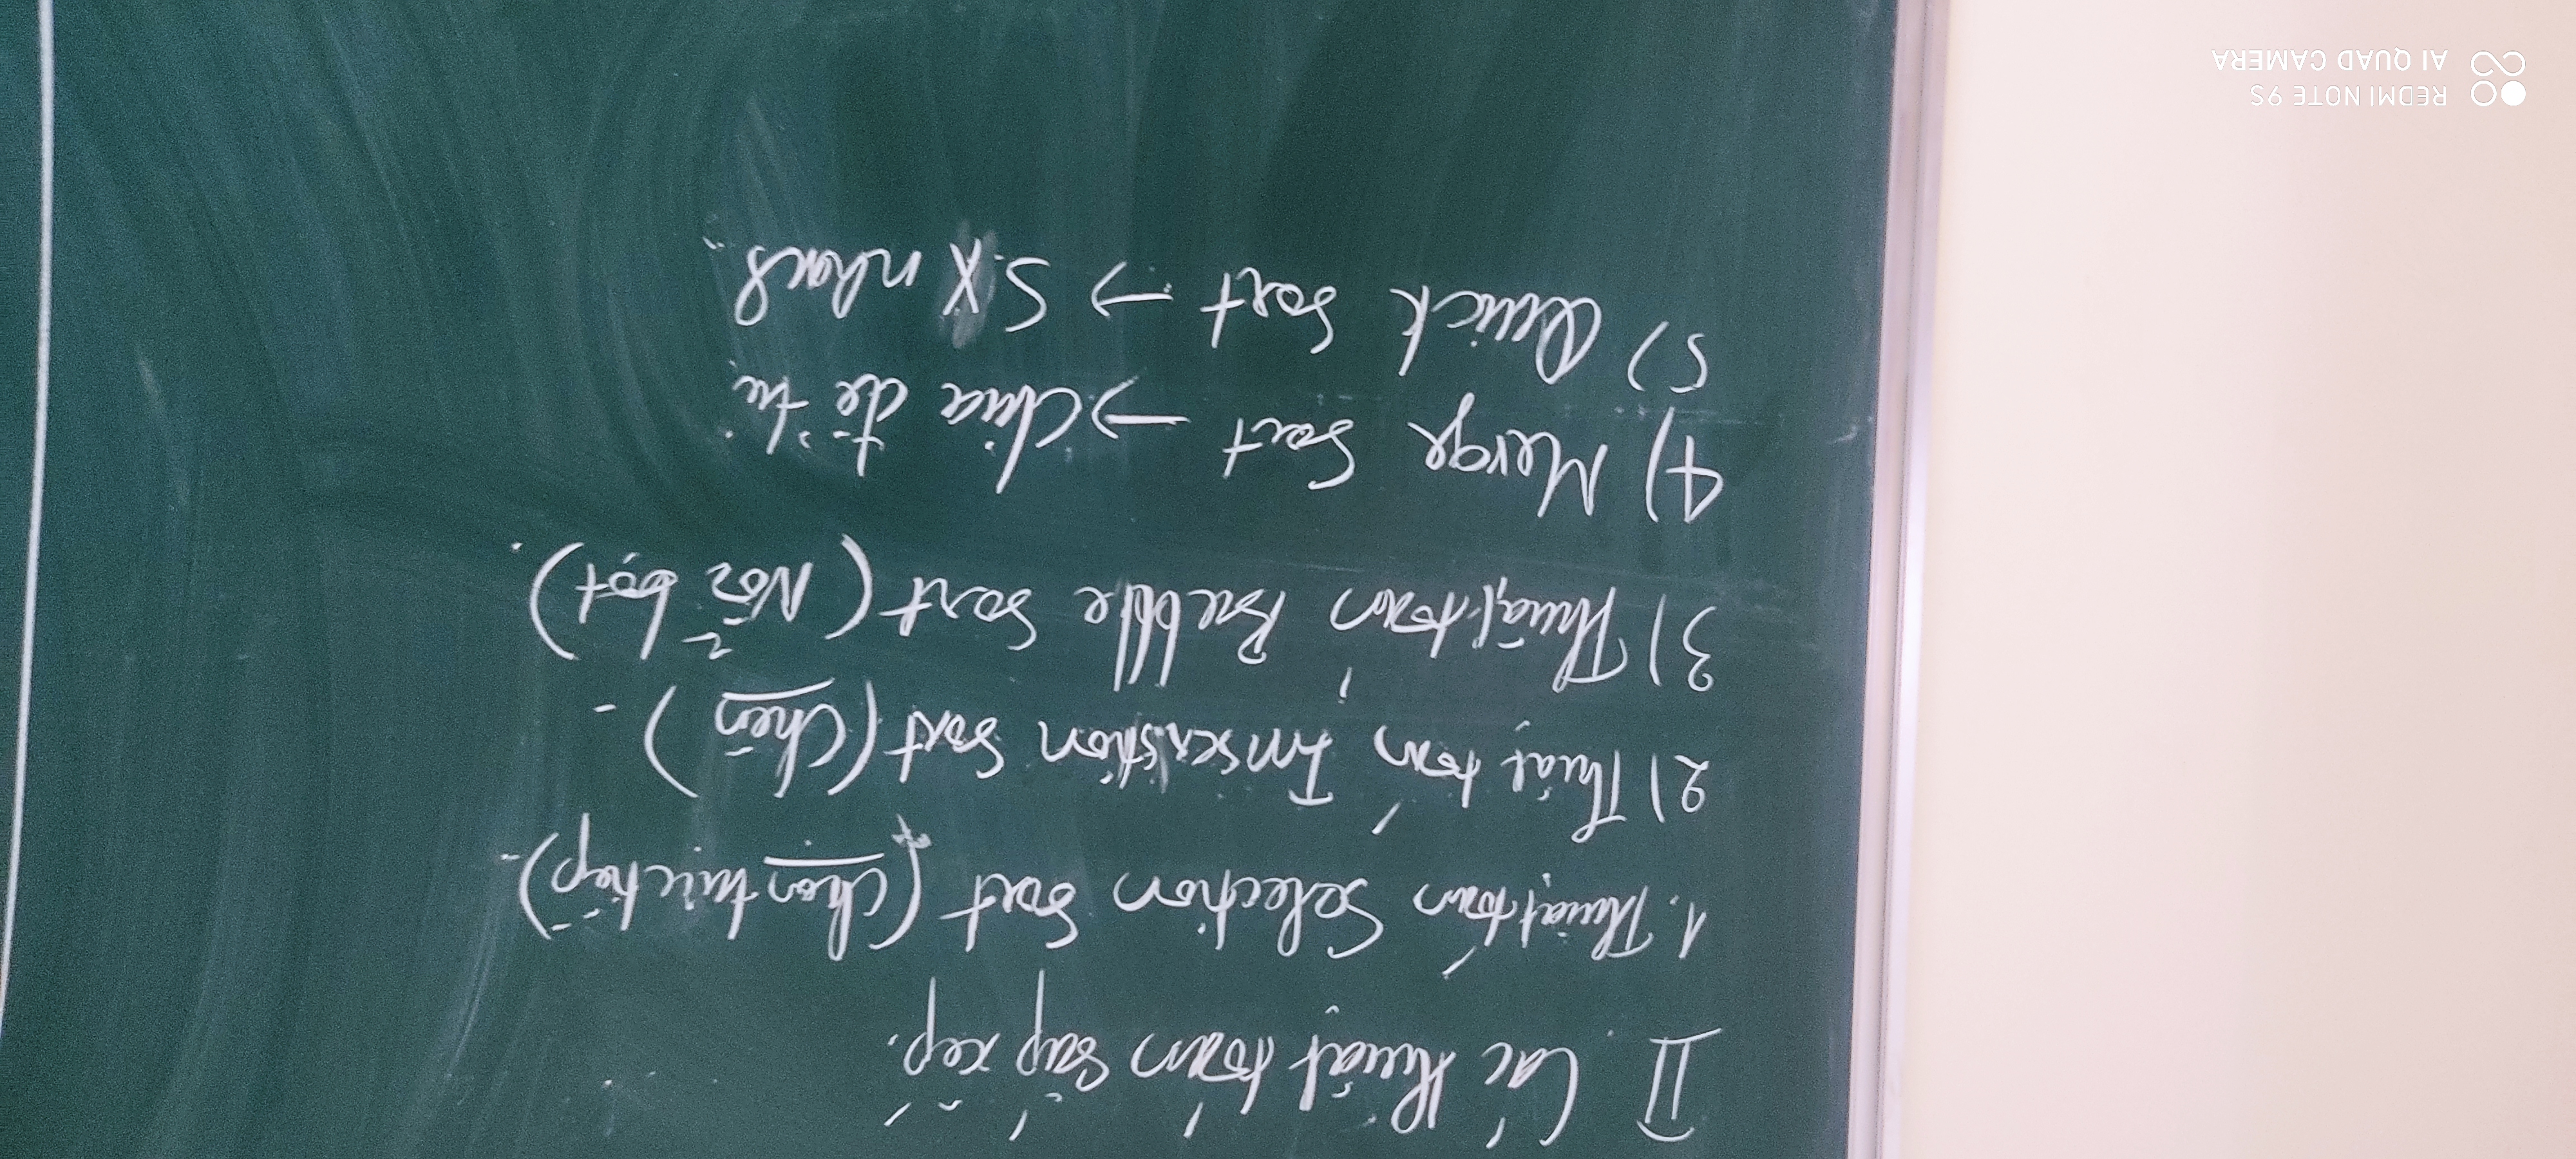 II. Các thuật toán sắp xếp.
1. Thuật toán Selection Sort (chọn trực tiếp).
2) Thuật toán Inserstion Sort (chèn).
3) Thuật toán Bubble Sort (Nổi bọt).
4) Merge Sort → chia để trị
5) Quick Sort → S.X nhanh.
REDMI NOTE 9S
AI QUAD CAMERA